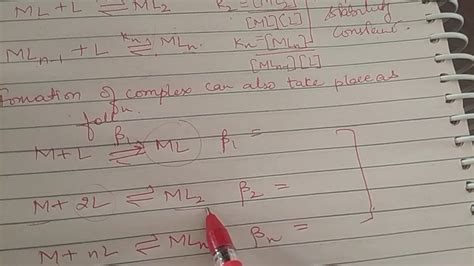 ML + L ⇌ ML₂ K₂ = [ML₂] stability
[ML][L] constant.
MLₙ₋₁ + L ⇌ MLₙ Kₙ = [MLₙ]
Kₙ [MLₙ₋₁][L]
Fomation of complex can also take place as
follow
M + L ⇌ ML β₁ =
β₁
M + 2L ⇌ ML₂ β₂ =
M + nL ⇌ MLₙ βₙ =